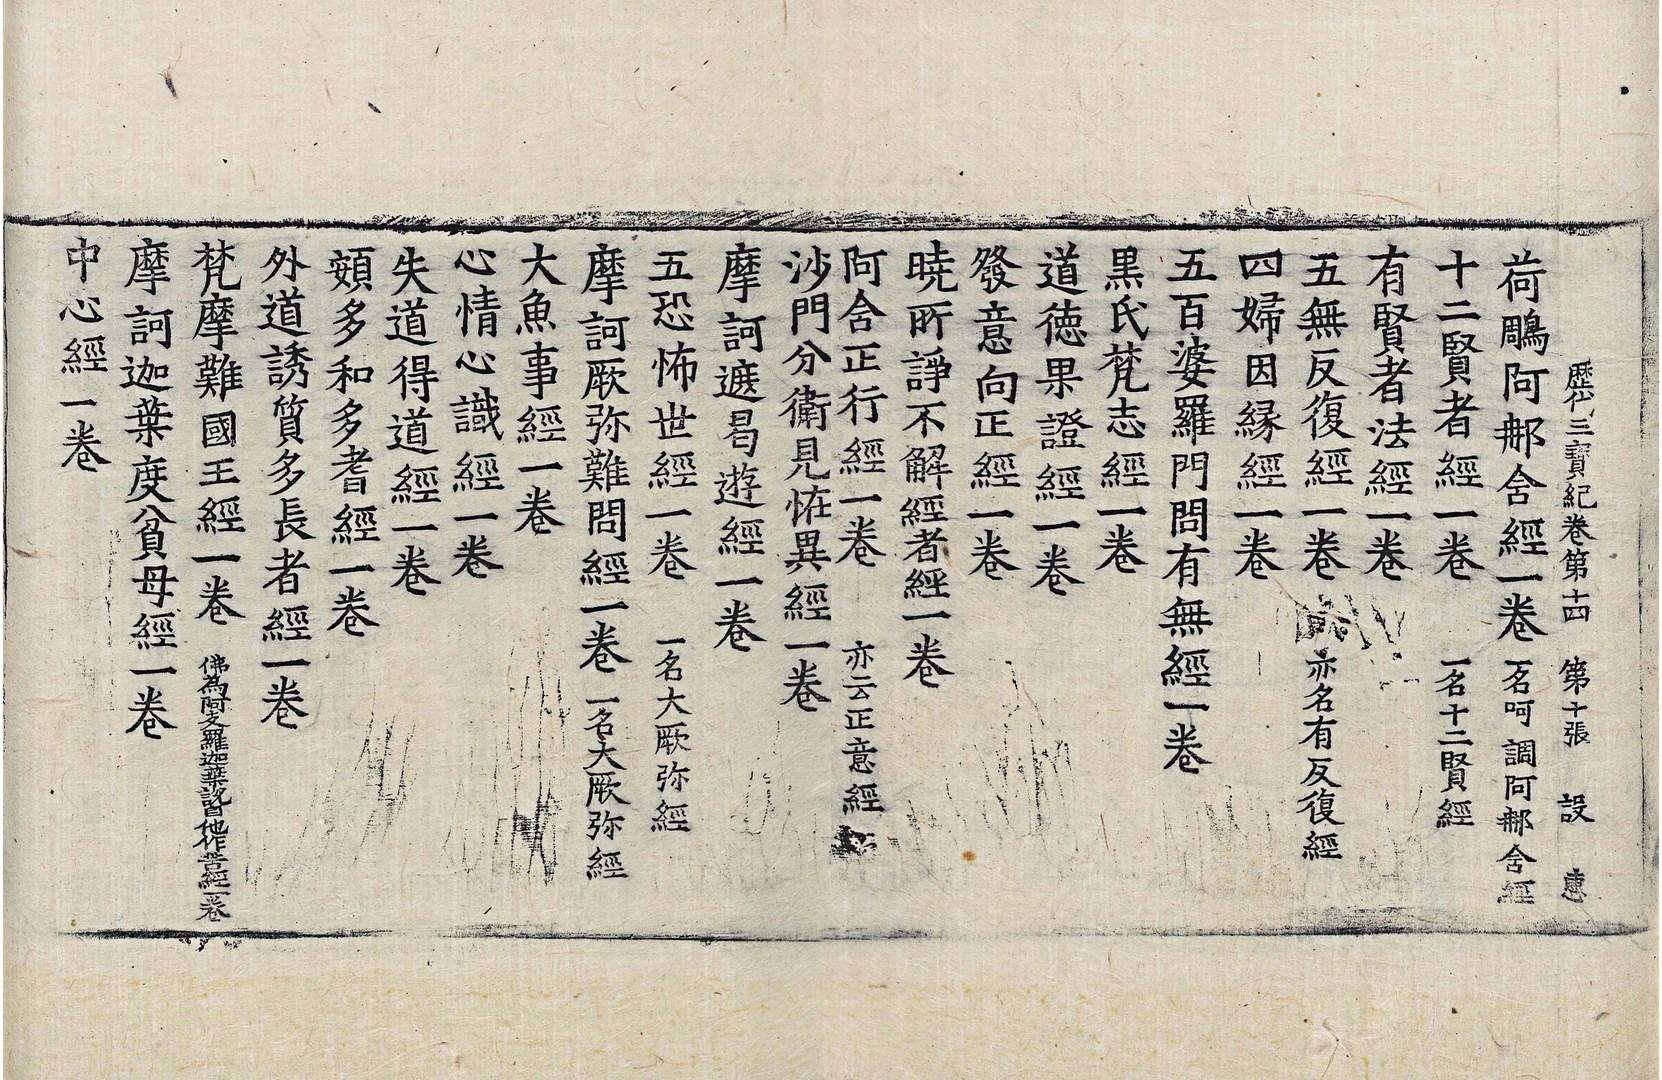 歷代三寶紀卷第十四 第十張 設
荷鵰阿那含經一卷 一名呵調阿那含經
十二賢者經一卷 一名十二賢經
有賢者法經一卷
五無反復經一卷 亦名有反復經
四婦因緣經一卷
五百婆羅門問有無經一卷
黑氏梵志經一卷
道德果證經一卷
發意向正經一卷
曉所諍不解經者經一卷
阿含正行經一卷 亦云正意經
沙門分衛見恠異經一卷
摩訶遮曷遊經一卷
五恐怖世經一卷 一名大厥弥經
摩訶厥弥難問經一卷 一名大厥弥經
大魚事經一卷
心情心識經一卷
失道得道經一卷
頞多和多耆經一卷
外道誘質多長者經一卷
梵摩難國王經一卷 佛為阿支羅迦葉說自他作苦經一卷
摩訶迦葉度貧母經一卷
中心經一卷